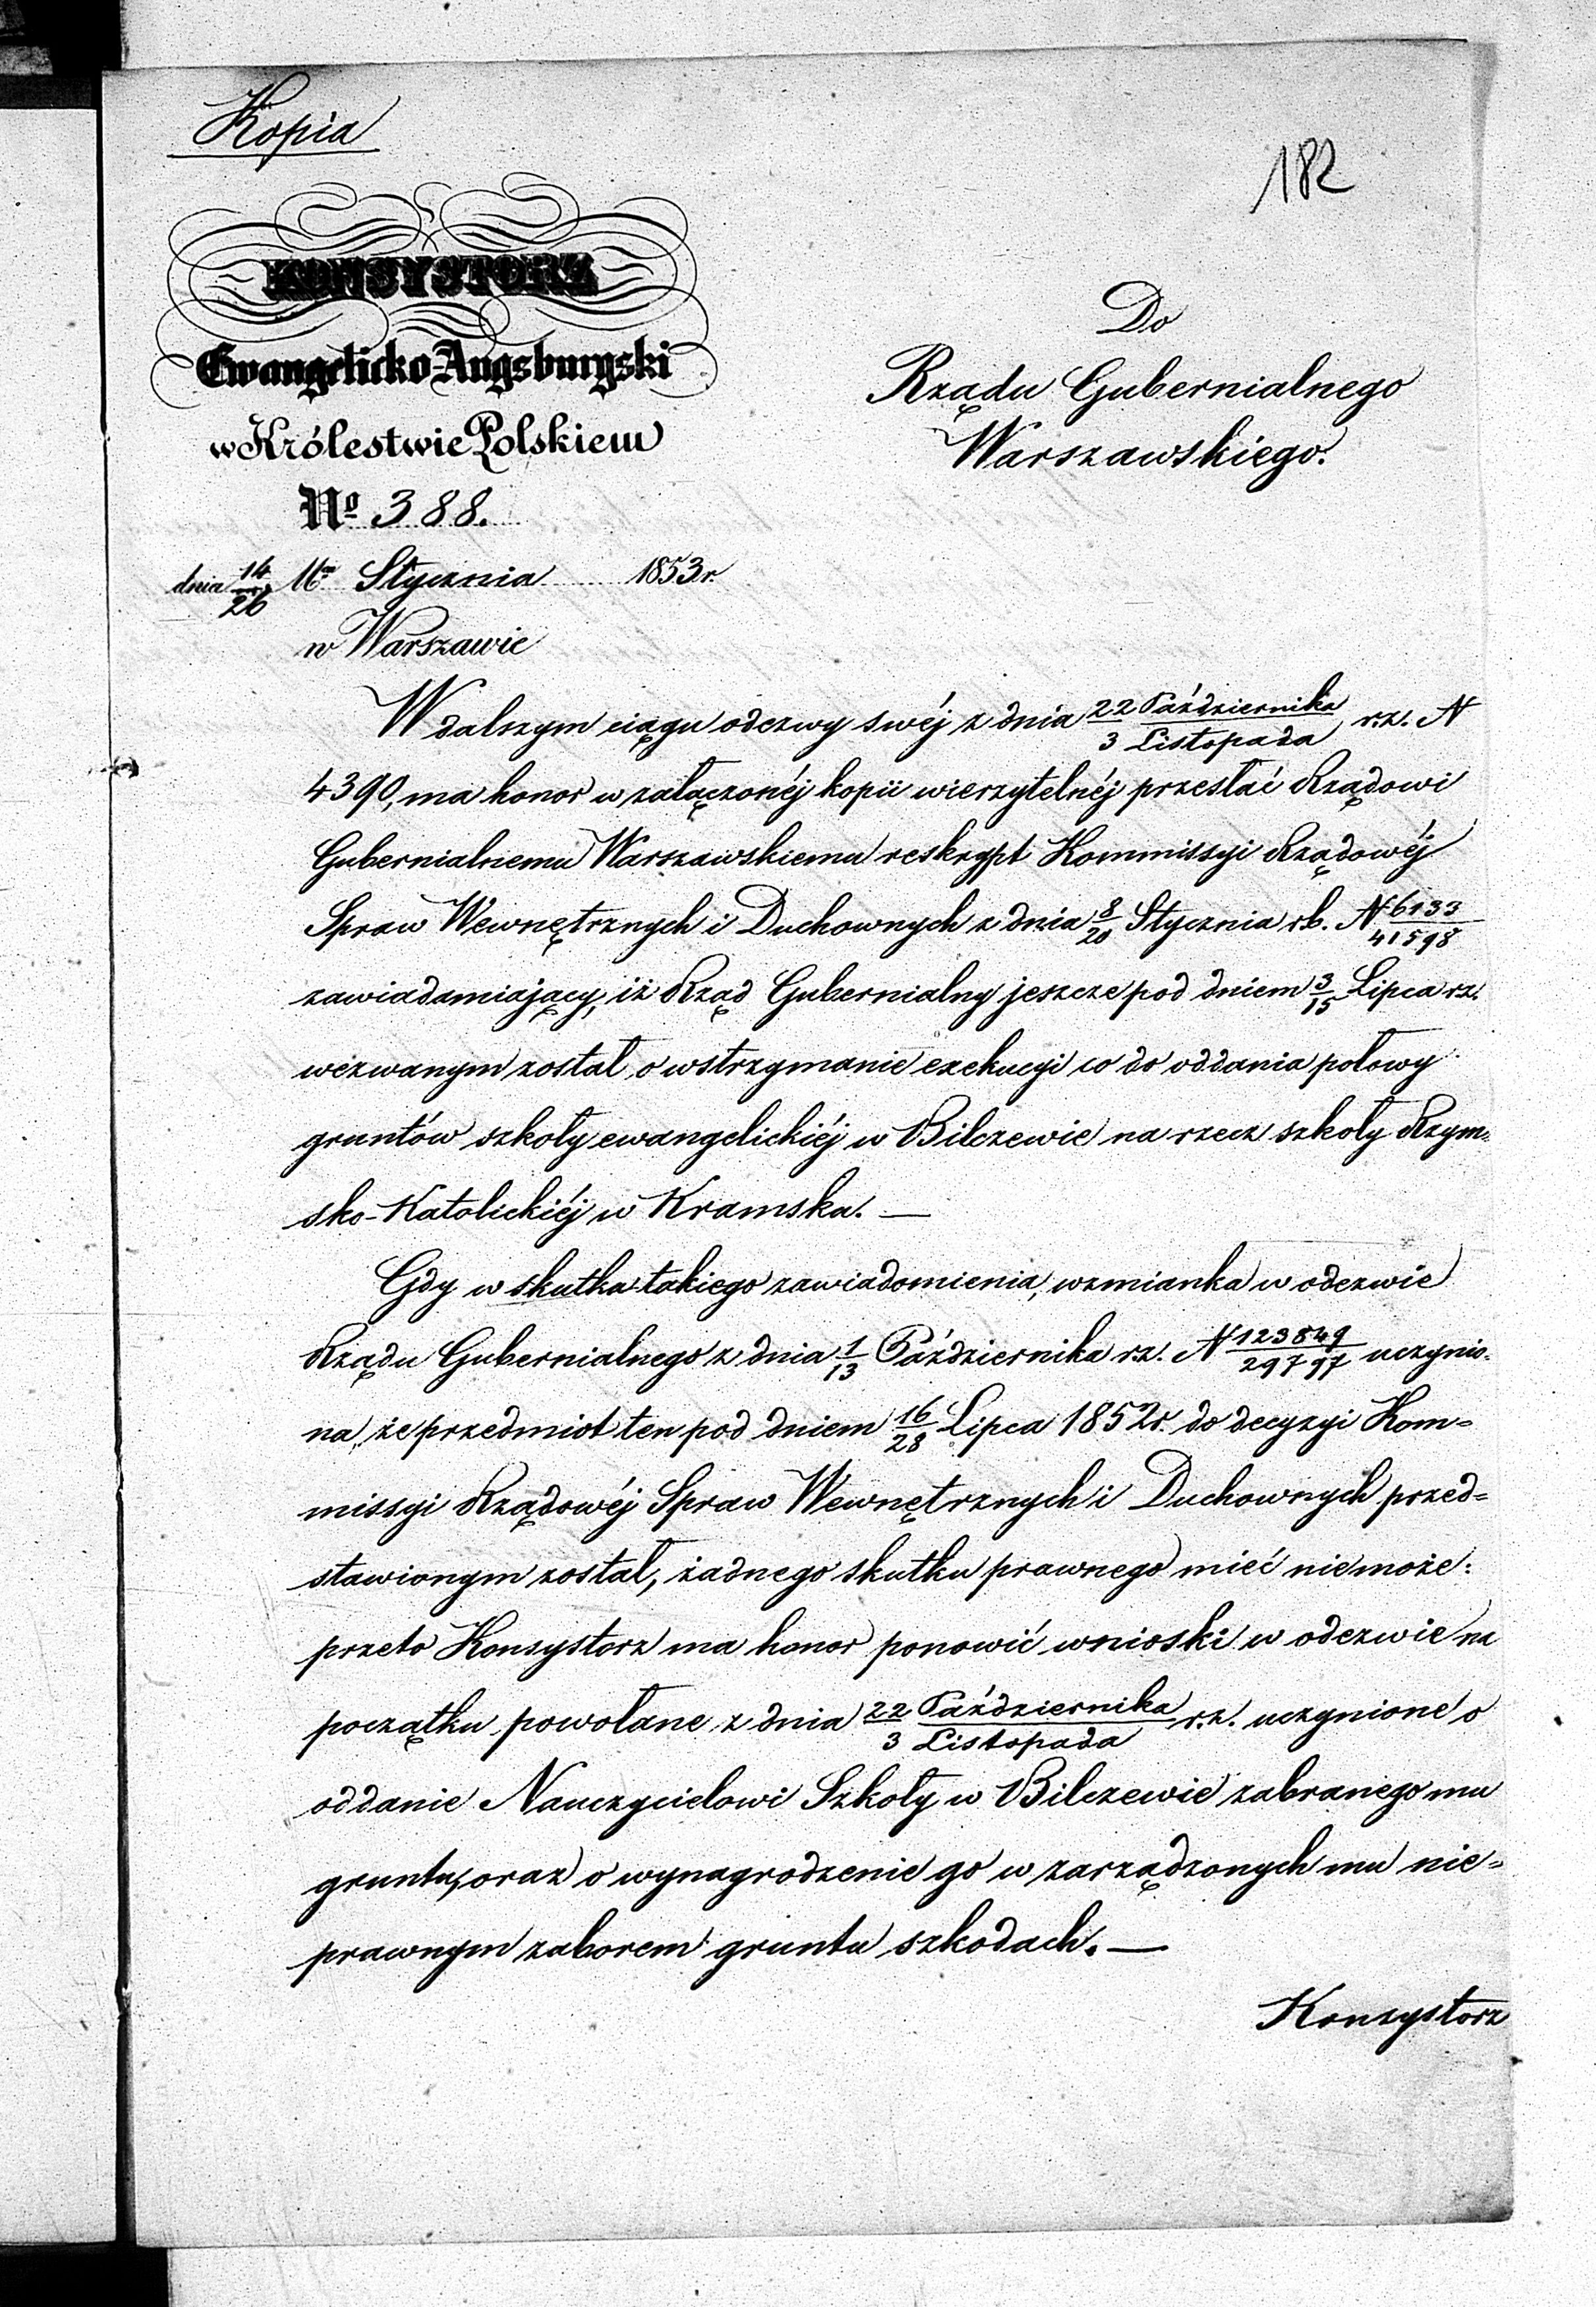 Kopia
182
KONSYSTORZ
Ewangelicko-Augsburgski
w Królestwie Polskiem
No 388.
dnia 14/26 Mca Stycznia 1853 r.
w Warszawie
Do
Rządu Gubernialnego
Warszawskiego.
W dalszym ciągu odezwy swéj z dnia 22 Października/3 Listopada r.z. N
4390, ma honor w załączonéj kopii wierzytelnéj przesłać Rządowi
Gubernialnemu Warszawskiemu reskrypt Kommissyi Rządowéj
Spraw Wewnętrznych i Duchownych z dnia 8/20 Stycznia rb. N 6133/41598
zawiadamiający, iż Rząd Gubernialny jeszcze pod dniem 3/15 Lipca rz.
wezwanym został o wstrzymanie exekucyi co do oddania połowy
gruntów szkoły ewangelickiéj w Bilczewie na rzecz szkoły Rzym-
sko-Katolickiéj w Kramsku. —
Gdy w skutku takiego zawiadomienia, wzmianka w odezwie
Rządu Gubernialnego z dnia 1/13 Października r.z. N 123849/29797 uczynio-
na, że przedmiot ten pod dniem 16/28 Lipca 1852 r. do decyzyi Kom-
missyi Rządowéj Spraw Wewnętrznych i Duchownych przed-
stawionym został, żadnego skutku prawnego mieć niemoże:
przeto Konsystorz ma honor ponowić wnioski w odezwie na
początku powołane z dnia 22 Października/3 Listopada r.z. uczynione o
oddanie Nauczycielowi Szkoły w Bilczewie zabranego mu
gruntu, oraz o wynagrodzenie go w zarządzonych mu nie-
prawnym zaborem gruntu szkodach. —
Konsystorz